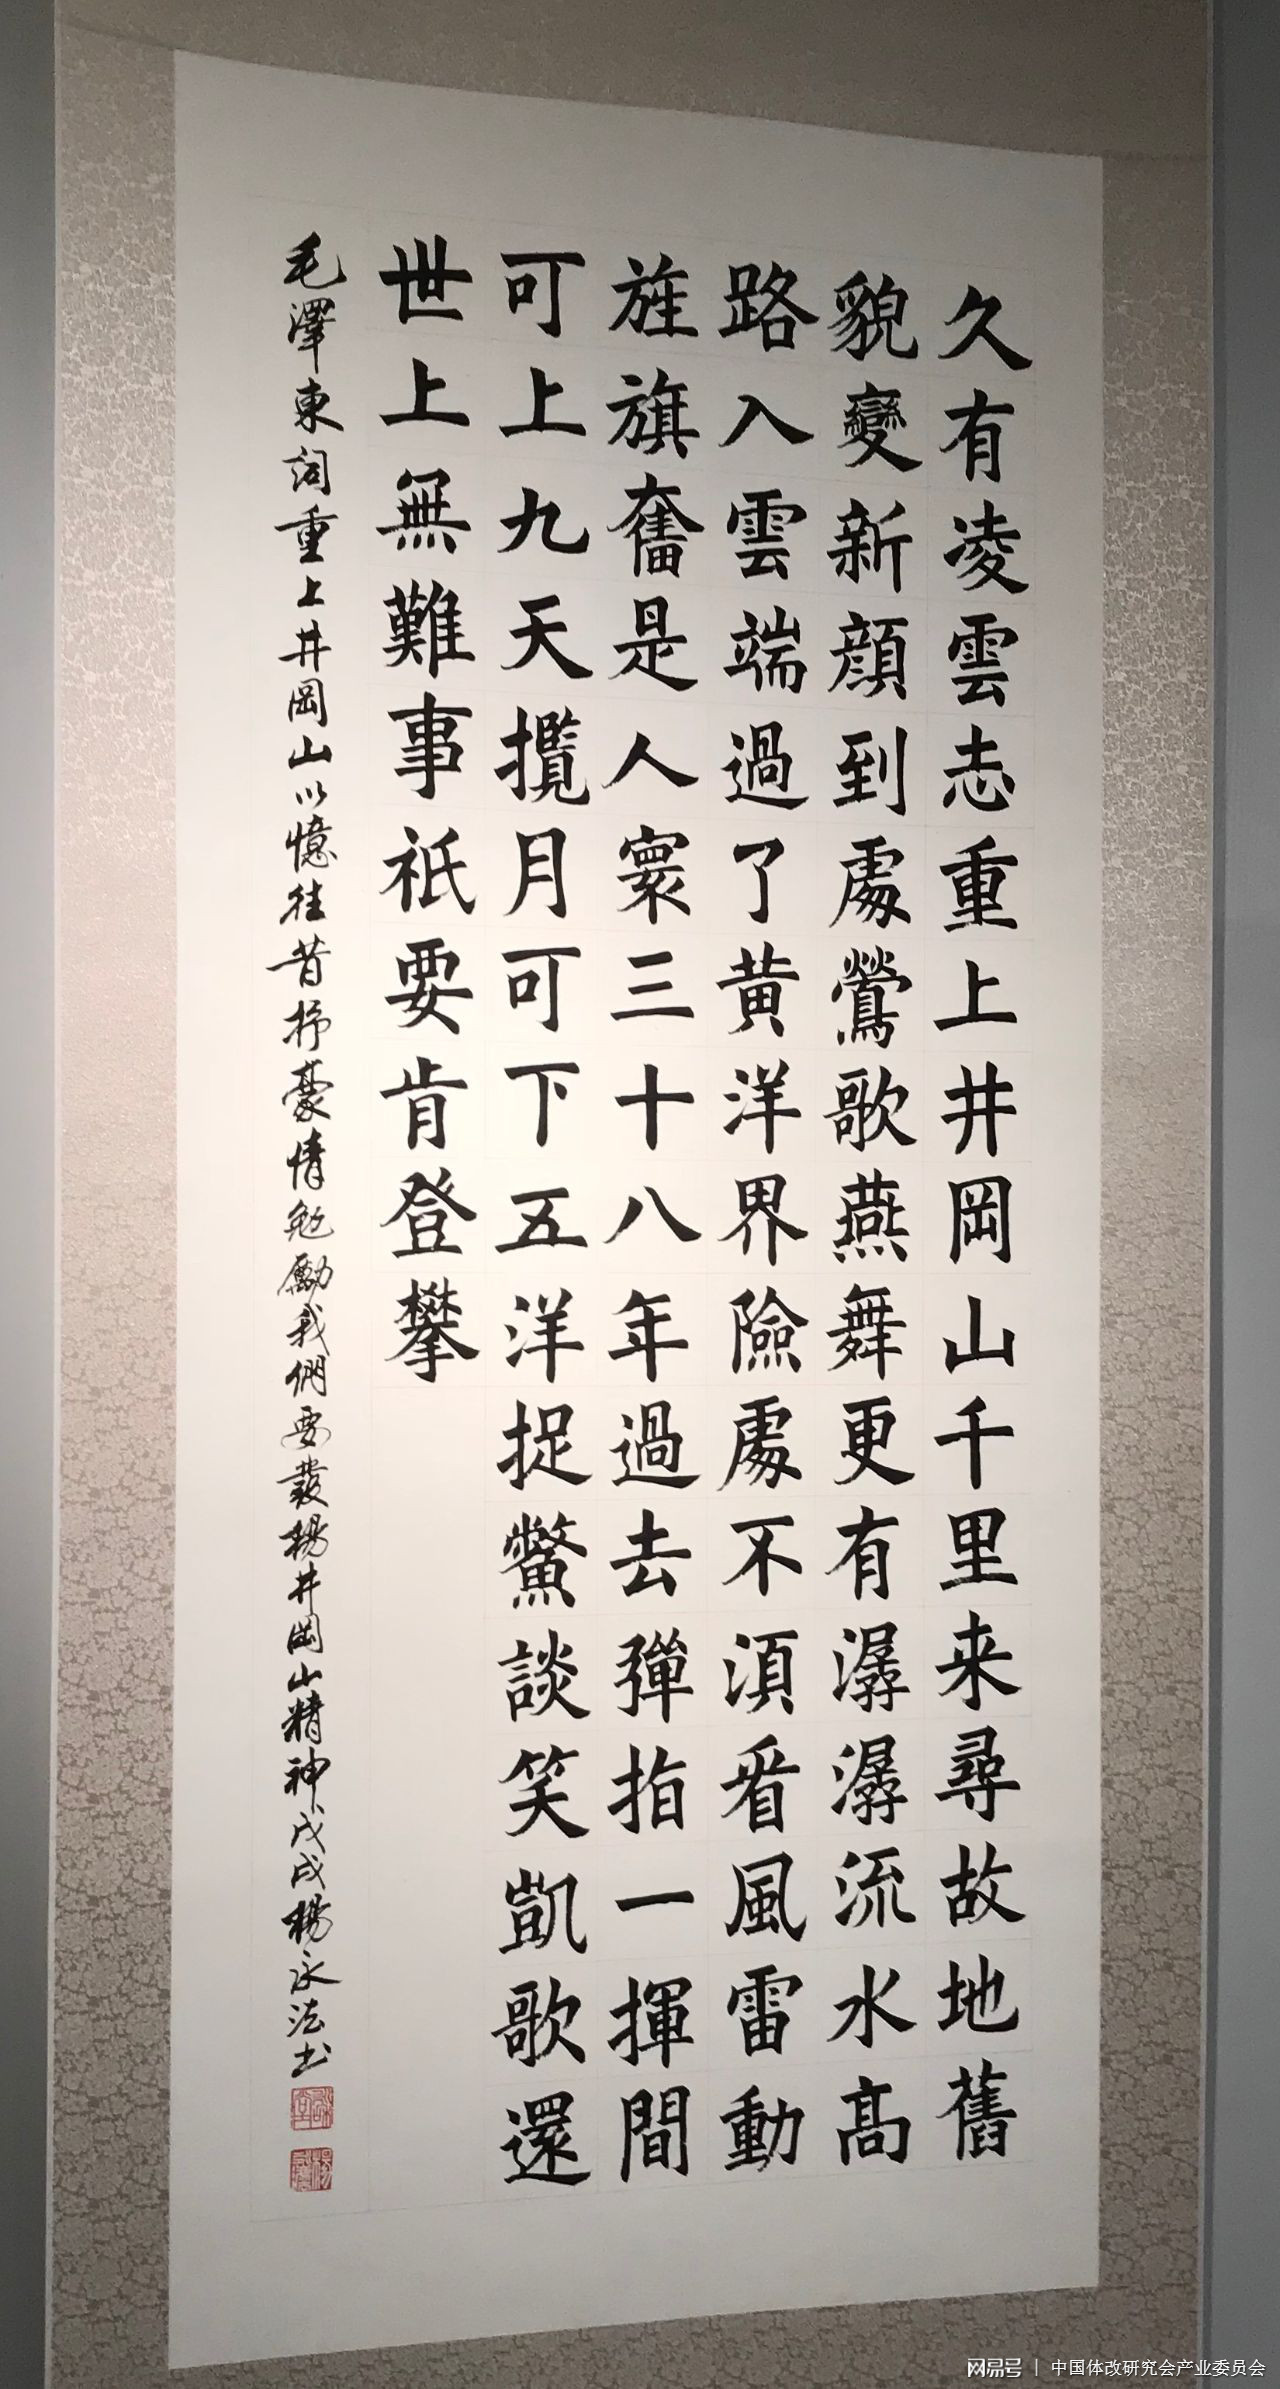 久有凌雲志重上井岡山千里来尋故地舊
貌變新顔到處鶯歌燕舞更有潺潺流水高
路入雲端過了黄洋界險處不湏看風雷動
旌旗奮是人寰三十八年過去彈指一揮間
可上九天攬月可下五洋捉鱉談笑凱歌還
世上無難事祇要肯登攀
毛澤東詞重上井岡山以憶往昔抒豪情勉勵我們要發揚井岡山精神戊戌楊永法书
网易号 | 中国体改研究会产业委员会